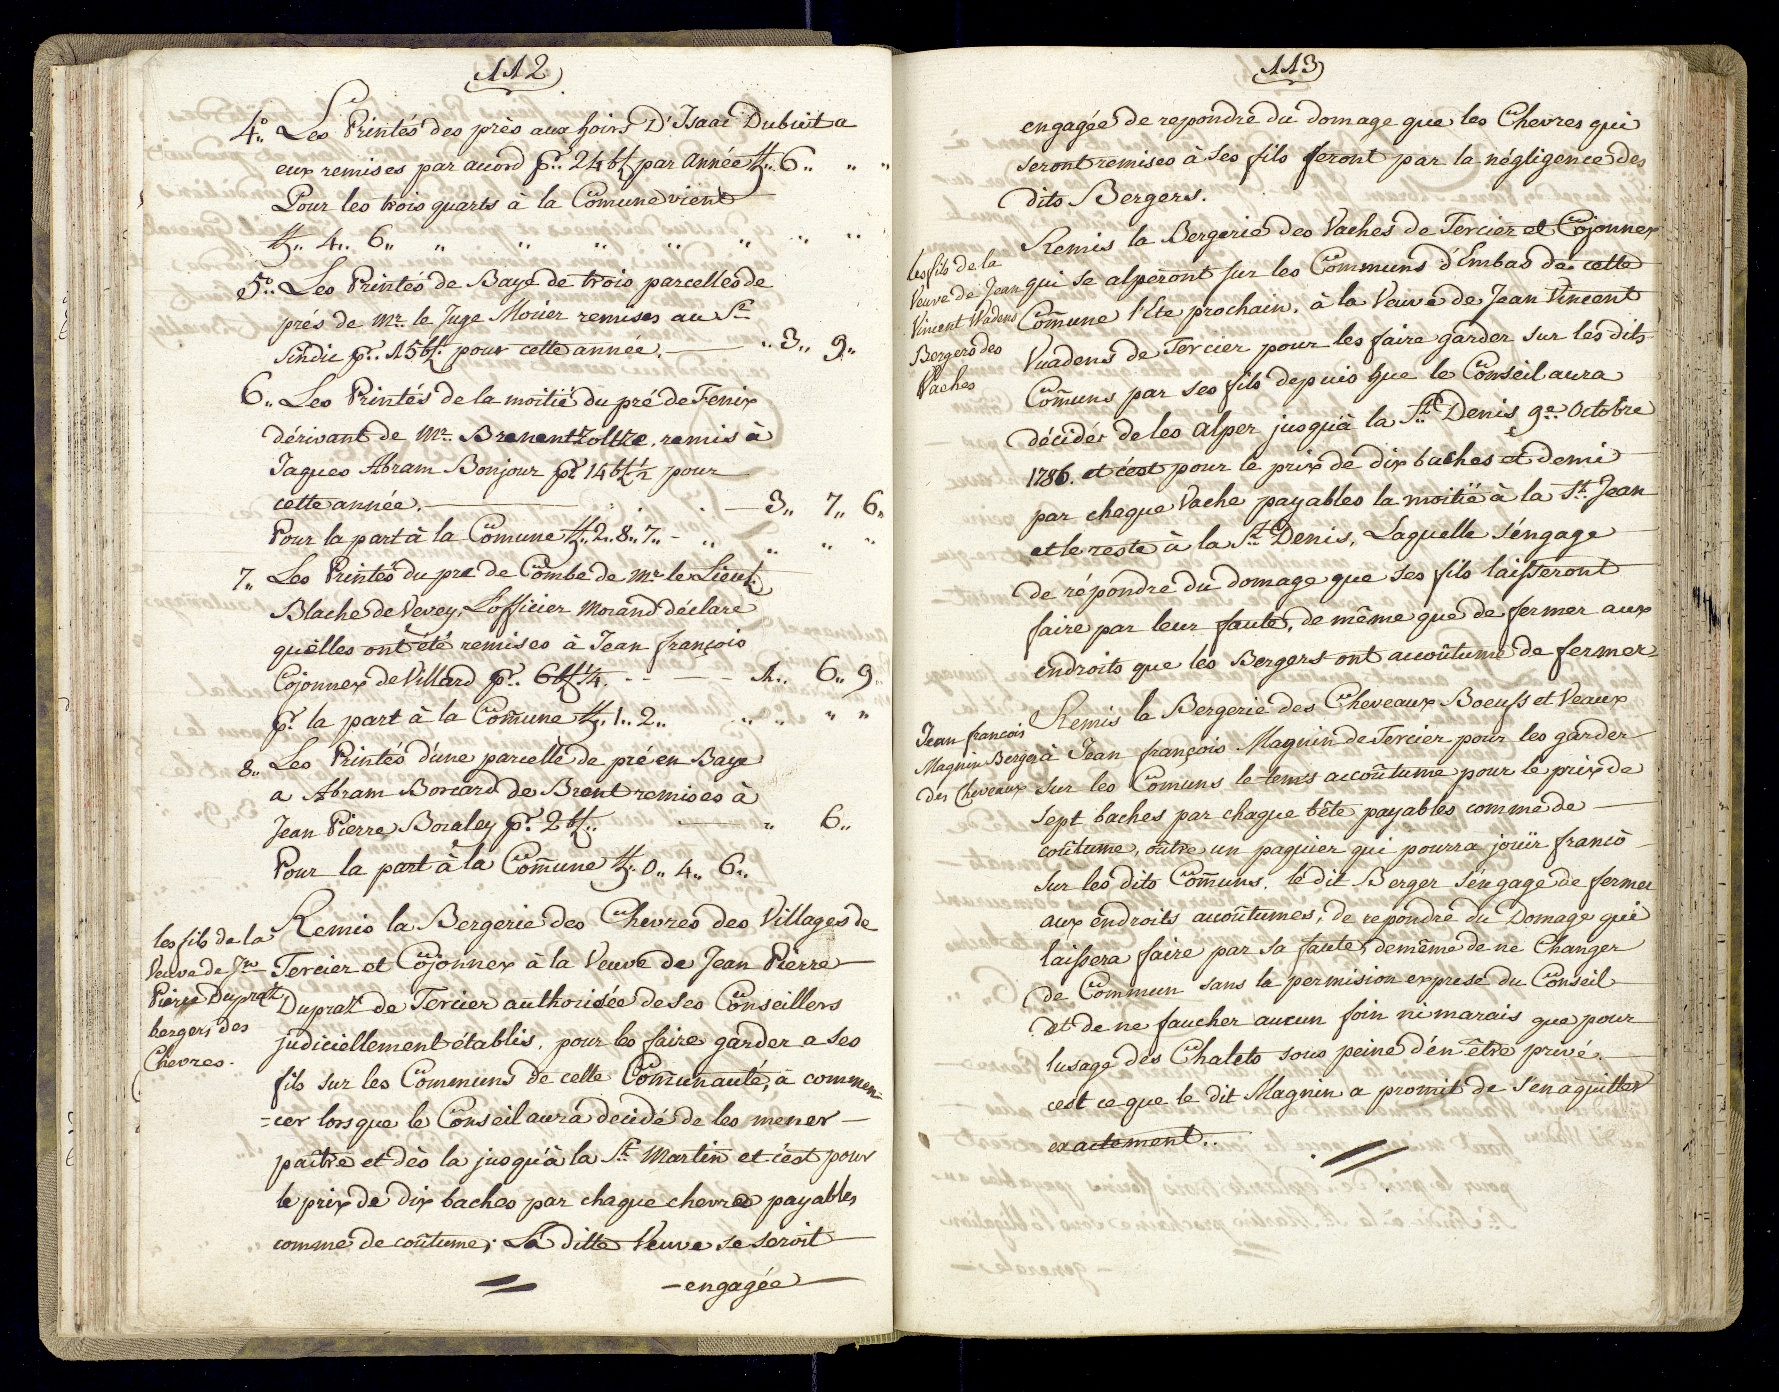 112
4.° Les Printés des près aux hoirs D'Isaac Dubuit a
eux remises par acord pr. 24 bf par Année ₶. 6 „ „ „
Pour les trois quarts à la Com̃une vient
₶„ 4„ 6„ „ „ „ „ „ „ „
5.° Les Printés de Baye de trois parcelles de
prés de Mr. le Juge Morier remises au Sr.
Sindic pr. 15 bf. pour cette année. — „ 3„ 9„
6„ Les Printés de la moitié du pré de Fenix
dérivant de Mr. Brenentzoltze, remis à
Jaques Abram Bonjour pr. 14 bf ½ pour
cette année. — 3„ 7„ 6„
Pour la part à la Com̃une ₶„ 2„ 8„ 7„ - „ „ „ „
7„ Les Printés du pré de Combe de Mr. le Lieut.
Blache de Vevey, L'officier Morand déclare
qu'elles ont été remises à Jean françois
Cojonnex de Villard pr. 6 bf ¼. - - — - 1„ 6„ 9„
pr. la part à la Com̃une ₶„ 1„ 2„ „ „ „ „
8„ Les Printés d'une parcelle de pré en Baye
a Abram Borcard de Brent remises à
Jean Pierre Bocaley pr. 2 bf„ — „ 6„
Pour la part à la Com̃une ₶„ 0„ 4„ 6„
les fils de la
Veuve de Jn
Pierre Dupraz
bergers des
Chevres.
Remis la Bergerie des Chevres des Villages de
Tercier et Cojonnex à la Veuve de Jean Pierre
Dupraz de Tercier authorisée de ses Conseillers
judiciellement établis, pour les faire garder a ses
fils sur les Communs de celle Com̃unauté, à commen-
-cer lorsque le Conseil aura decidé de les mener —
paître et dès la jusqu'à la St. Martin et c'est pour
le prix de dix baches par chaque chevre payables
comme de coûtume; La ditte Veuve se seroit —
— engagée —
113
engagée de repondre du domage que les Chevres qui
seront remises à ses fils feront par la négligence des
dits Bergers.
les fils de la
Veuve de Jean
Vincent Wadens
Bergers des
Vaches
Remis la Bergerie des Vaches de Tercier et Cojonnex
qui se alperont sur les Communs d'Embas de cette
Com̃une l'Ete prochain, à la Veuve de Jean Vincent
Vuadens de Tercier pour les faire garder sur les dits
Com̃uns par ses fils depuis que le Conseil aura
décidér de les alper jusqu'à la St. Denis 9e. Octobre
1786. et c'est pour le prix de dix baches et demi
par chaque Vache payables la moitié à la St. Jean
et le reste à la St. Denis, Laquelle s'engage
de répondre du domage que ses fils laisseront
faire par leur faute, de même que de fermer aux
endroits que les Bergers ont accoûtumé de fermer-
Jean francois
Magnin Berger
des Cheveaux
Remis la Bergerie des Cheveaux Boeufs et Veaux
à Jean françois Magnin de Tercier pour les garder
sur les Com̃uns le tems accoûtumé pour le prix de
sept baches par chaque tête payables comme de —
coûtume, oûtre un paquier qui pourra jouïr francò
sur les dits Com̃uns. le dit Berger s'engage de fermer
aux endroits accoûtumes, de repondre du Domage qu'il
laissera faire par sa faute, demême de ne Changer
de Commun sans la permision expresé du Conseil
et de ne faucher aucun foin ni marais que pour
lusage des Chalets sous peine d'en être privé. —
cest ce que le dit Magnin a promit de s'en aquitter
exactement..